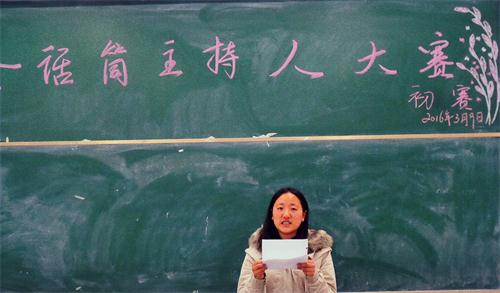 话筒主持人大赛
初赛
2016年3月9日